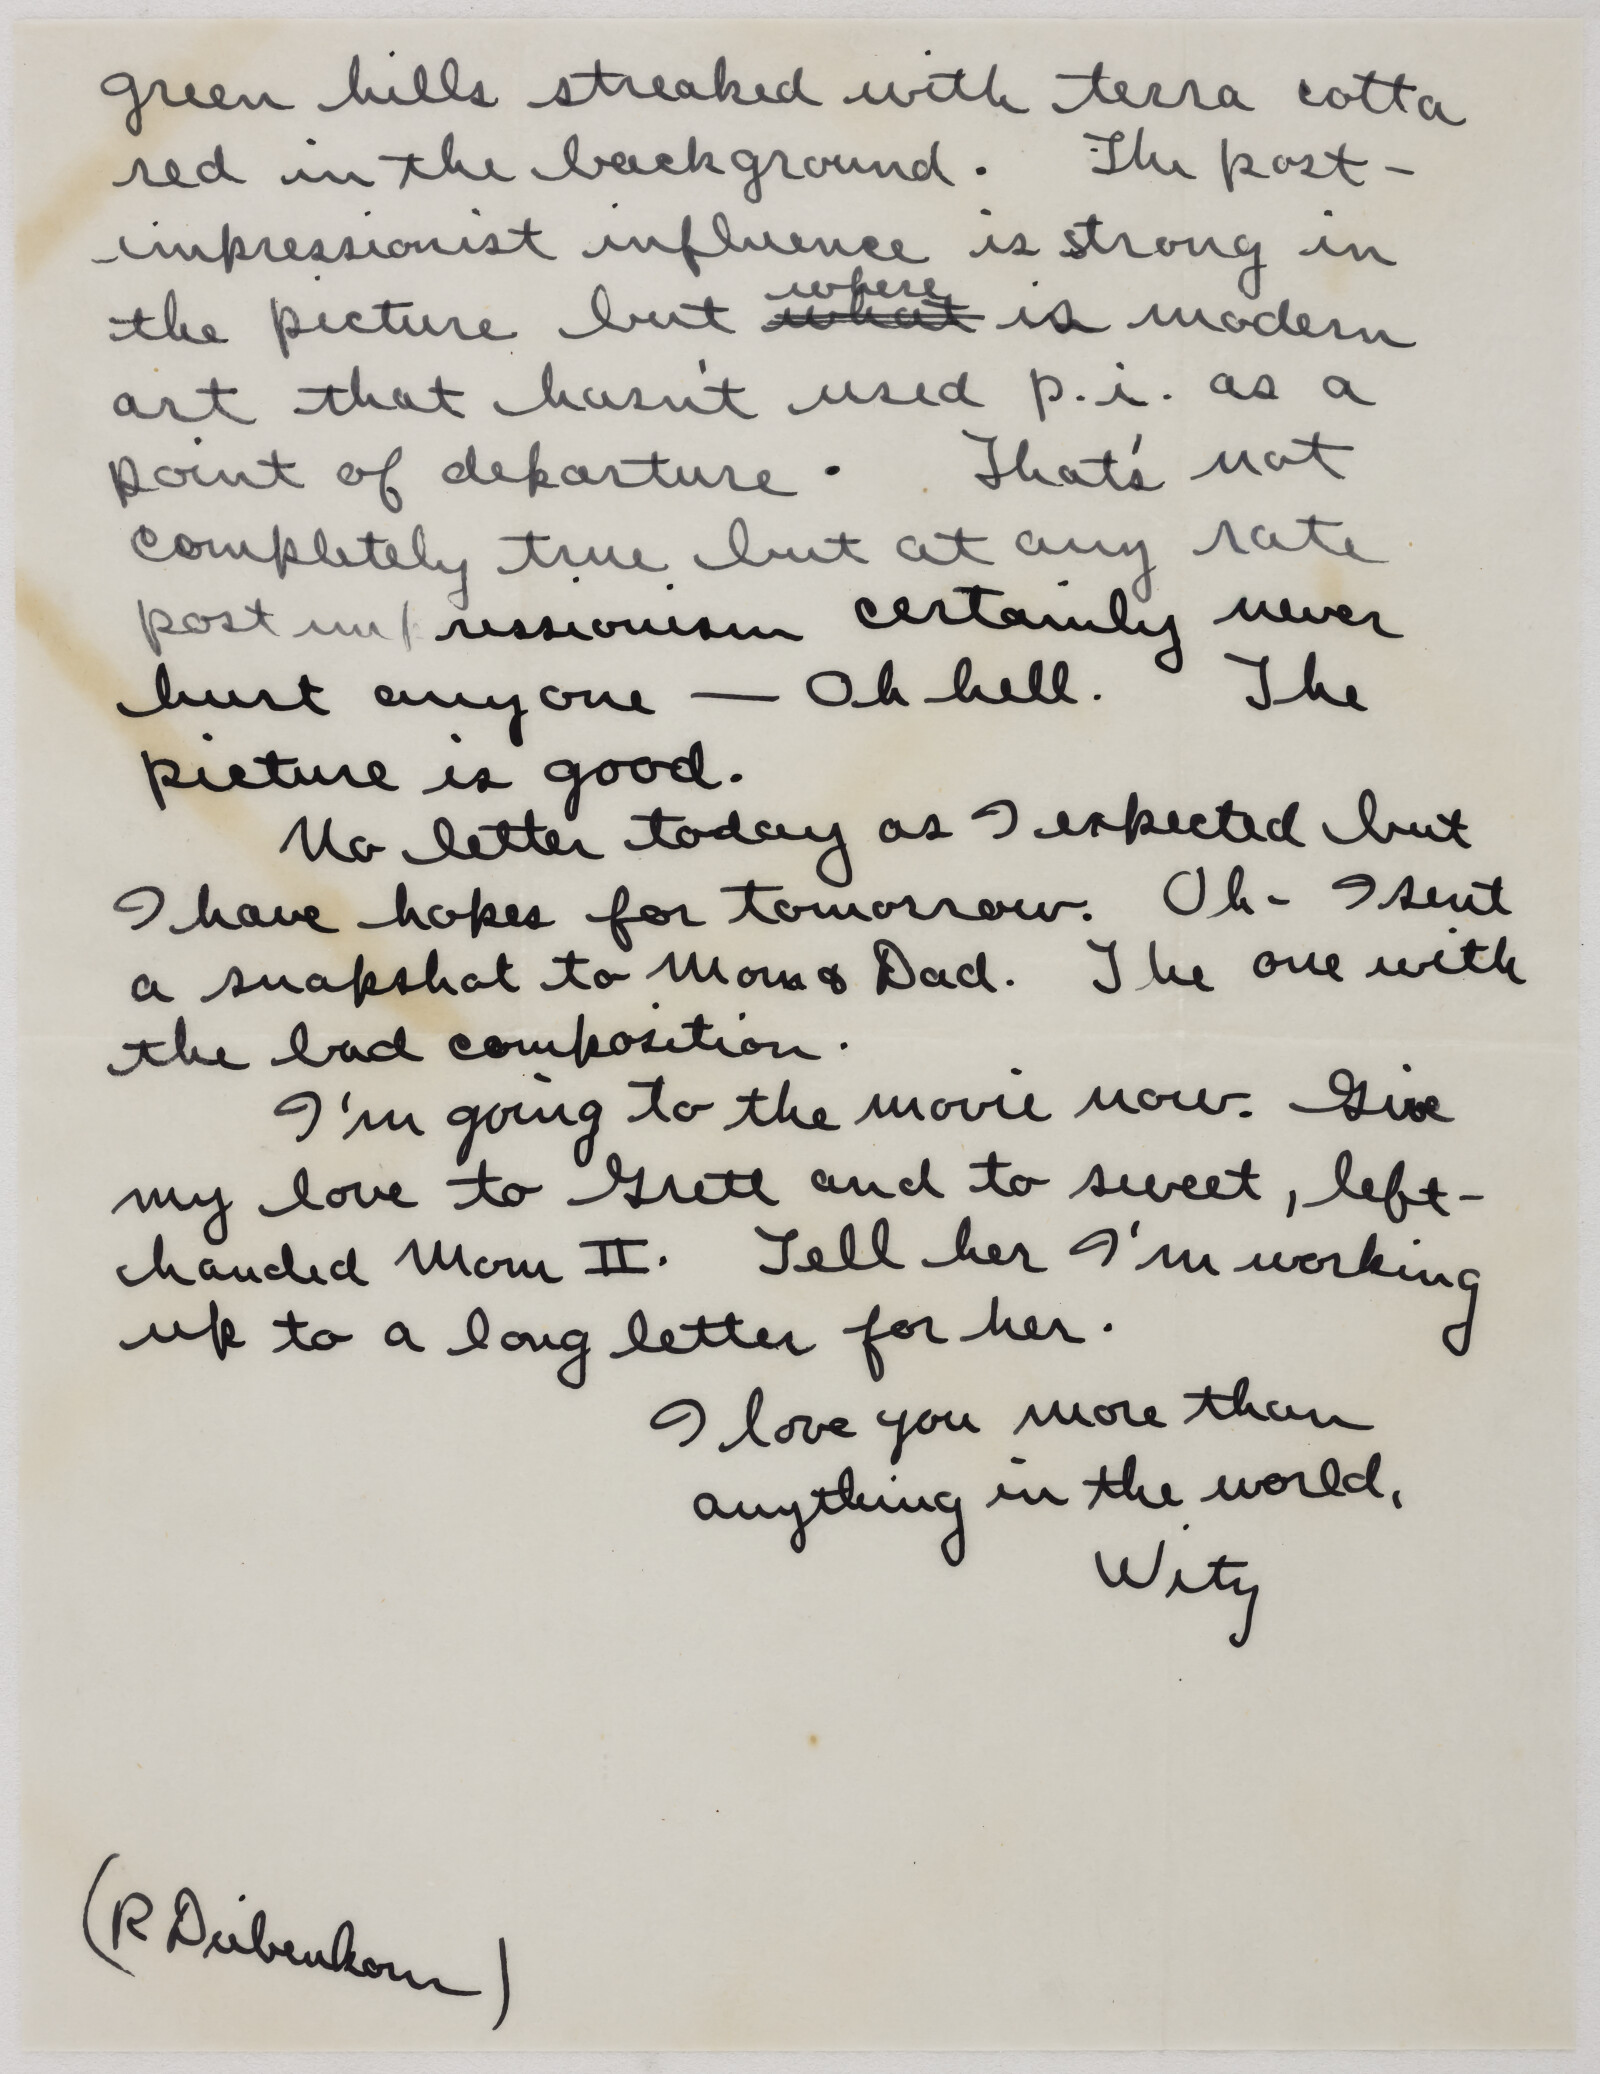 green hills streaked with terra cotta
red in the background. The post-
impressionist influence is strong in
where
the picture but what is modern
art that hasn't used p.i. as a
point of departure. That's not
completely true but at any rate
post impressionism certainly never
hurt anyone — Oh hell. The
picture is good.
No letter today as I expected but
I have hopes for tomorrow. Oh- I sent
a snapshot to Mom & Dad. The one with
the bad composition.
I'm going to the movie now. Give
my love to Grett and to sweet, left-
handed Mom II. Tell her I'm working
up to a long letter for her.
I love you more than
anything in the world,
Wity
(R Diebenkorn)